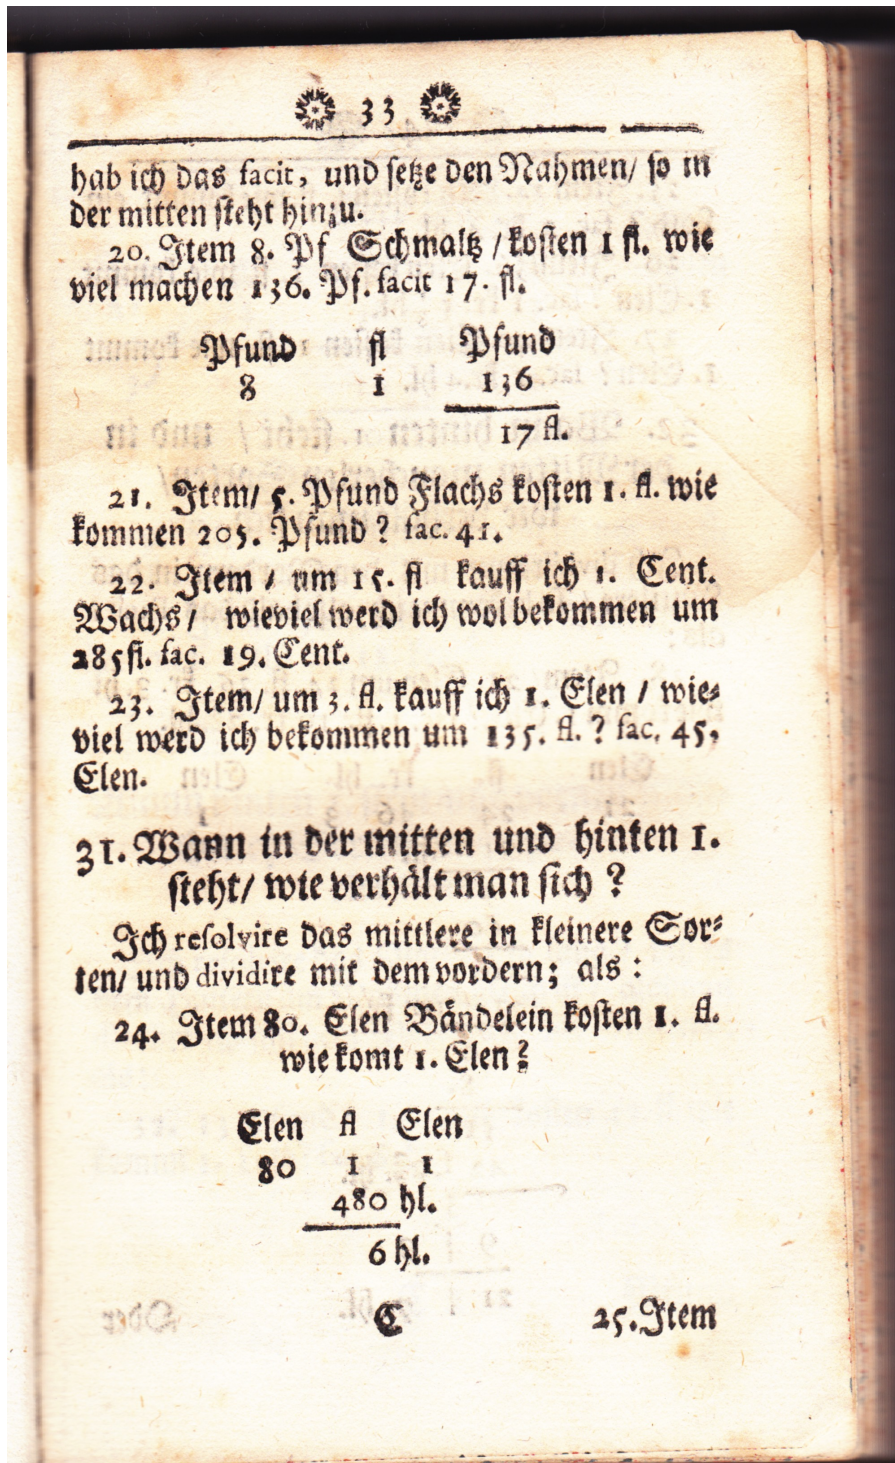 33
hab ich das facit, und setze den Nahmen/ so in
der mitten steht hinzu.
20. Item 8. Pf Schmaltz / kosten 1 fl. wie
viel machen 136. Pf. facit 17. fl.
Pfund fl Pfund
8 1 136
17 fl.
21. Item/ 5. Pfund Flachs kosten 1. fl. wie
kommen 205. Pfund ? fac. 41.
22. Item / um 15. fl kauff ich 1. Cent.
Wachs/ wieviel werd ich wol bekommen um
285 fl. fac. 19. Cent.
23. Item/ um 3. fl. kauff ich 1. Elen / wie-
viel werd ich bekommen um 135. fl. ? fac. 45.
Elen.
31. Wann in der mitten und hinten 1.
steht/ wie verhält man sich ?
Ich resolvire das mittlere in kleinere Sor-
ten/ und dividire mit dem vordern; als :
24. Item 80. Elen Bändelein kosten 1. fl.
wie komt 1. Elen ?
Elen fl Elen
80 1 1
480 hl.
6 hl.
C 25. Item